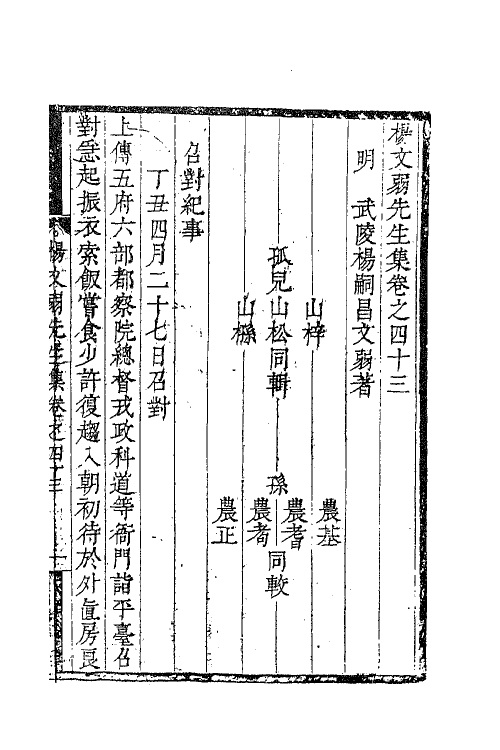 楊文弱先生集卷之四十三
明　武陵楊嗣昌文弱著
山梓
孤見山松同輯
山𣝛
農基
農耆
孫　同較
農耇
農正
召對紀事
丁丑四月二十七日召對
上傳五府六部都察院總督戎政科道等衙門詣平臺召
對急起振衣索飯嘗食少許復趨入朝初待於外直房良
楊文弱先生集卷之四十三